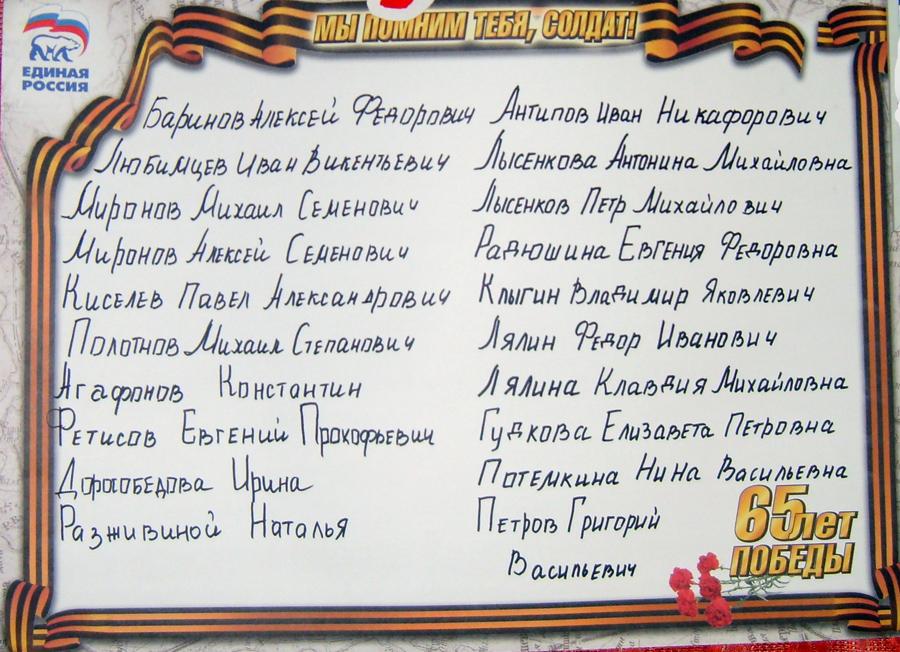 МЫ ПОМНИМ ТЕБЯ, СОЛДАТ!
ЕДИНАЯ
РОССИЯ
Баринов Алексей Федорович
Любимцев Иван Викентьевич
Миронов Михаил Семенович
Миронов Алексей Семенович
Киселев Павел Александрович
Полотнов Михаил Степанович
Агафонов Константин
Фетисов Евгений Прокофьевич
Дорособедова Ирина
Разживиной Наталья
Антипов Иван Никафорович
Лысенкова Антонина Михайловна
Лысенков Петр Михайлович
Радюшина Евгения Федоровна
Клыгин Владимир Яковлевич
Лялин Федор Иванович
Лялина Клавдия Михайловна
Гудкова Елизавета Петровна
Потемкина Нина Васильевна
Петров Григорий
Васильевич
65 лет
ПОБЕДЫ